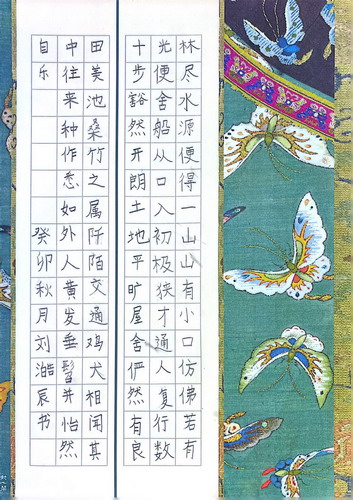 林尽水源便得一山山有小口仿佛若有
光便舍船从口入初极狭才通人复行数
十步豁然开朗土地平旷屋舍俨然有良
田美池桑竹之属阡陌交通鸡犬相闻其
中往来种作悉如外人黄发垂髫并怡然
自乐 癸卯秋月刘辰书